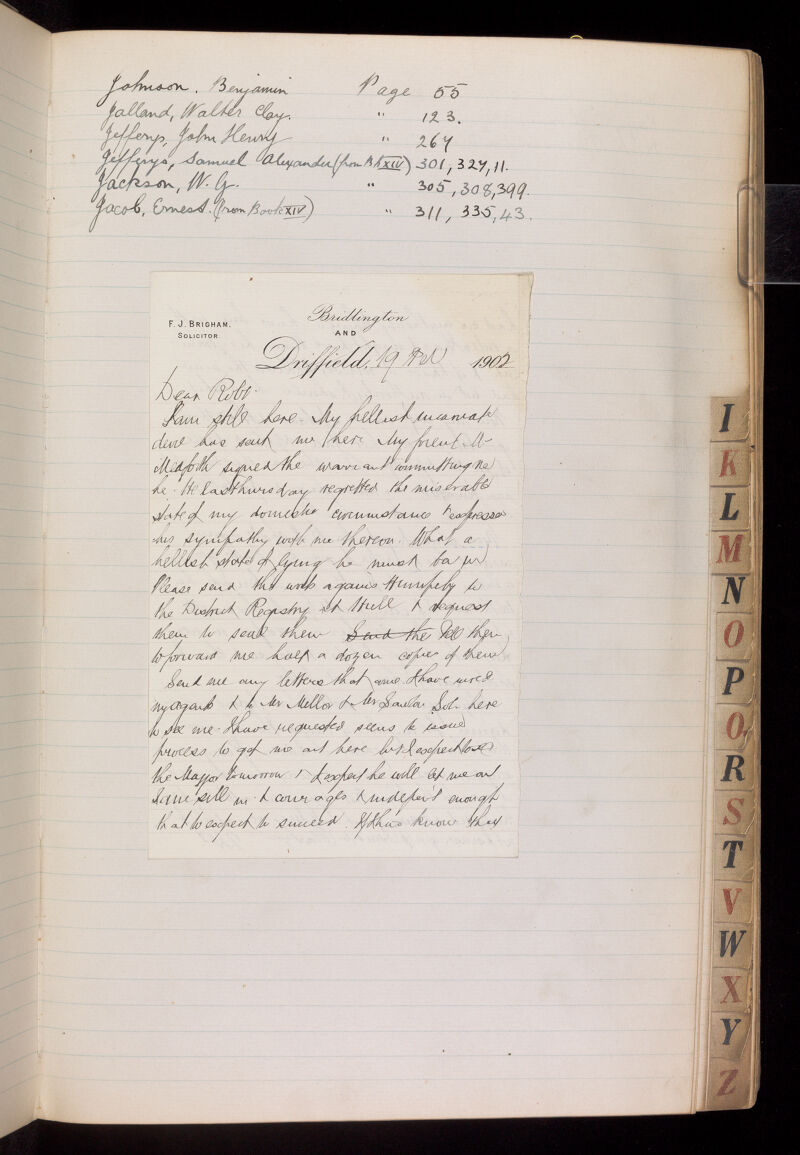 Johnson. Benjamin Page 55
Jalland, Walter Clay. " 123.
Jefferys, John Henry " 267
Jefferys, Samuel Alexander (from Bk XIV) 301, 327, 11.
Jackson, W. G. " 305, 308, 399.
Jacob, Ernest. (from Book XIV) " 311, 335, 43.
F. J. BRIGHAM.
SOLICITOR
Bridlington
AND
Driffield, 19 1902
Dear Robt.
I am still here. My hellish incarnate
has sent me here My friend Mr
signed the warrant committing me
he last thursday regretted the miserable
state of my domestic circumstances & expresses
his sympathy with me thereon. What a
hellish state of lying he must be in
Please send the writs against to
the District Registry at Hull & request
them to seal them Send the Tell them
to forward me half a dozen copies of them
Send me any letters that come. I have wired
my agents & to Mr Mellor & Mr here
to see me. I have requested to issue
process to get me out here but I expect to see
the Major tomorrow & I expect he will let me out
I am still in & enough
that to expect to succeed. know that
I
K
L
M
N
O
P
Q
R
S
T
V
W
X
Y
Z